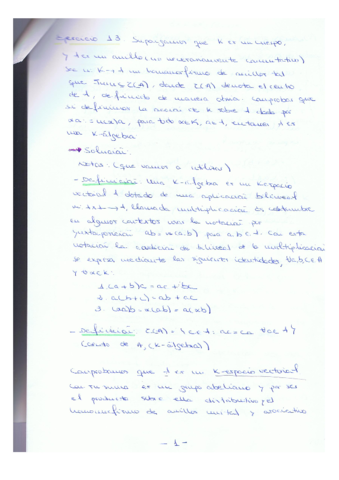 Ejercicio 13 Supongamos que K es un cuerpo,
y A es un anillo (no necesariamente conmutativo)
Sea u: K→A un homomorfismo de anillos tal
que Im(u) ⊂ Z(A), donde Z(A) denota el centro
de A, definido de manera obvia. Comprobar que
si definimos la acción de K sobre A dada por
xa := u(x)a, para todo x∈K, a∈A, entonces A es
una K-álgebra
→ Solución:
Notas: (que vamos a utilizar)
- Definición: Una K-álgebra es un K-espacio
vectorial A dotado de una aplicación bilineal
A×A→A, llamada multiplicación. Es costumbre
en algunos contextos usar la notación por
yuxtaposición ab = (a,b) para a,b ∈ A. Con esta
notación la condición de bilineal de la multiplicación
se expresa mediante las siguientes identidades, ∀a,b,c∈A
y ∀x∈K:
1. (a+b)c = ac + bc
2. a(b+c) = ab + ac
3. (xa)b = x(ab) = a(xb)
- Definición: Z(A) = {c∈A : ac = ca ∀a∈A}
(centro de A, (K-álgebra))
Comprobamos que A es un K-espacio vectorial
con su suma es un grupo abeliano y por ser
el producto sobre ella distributivo, el
homomorfismo de anillos unital y asociativo
- 1 -